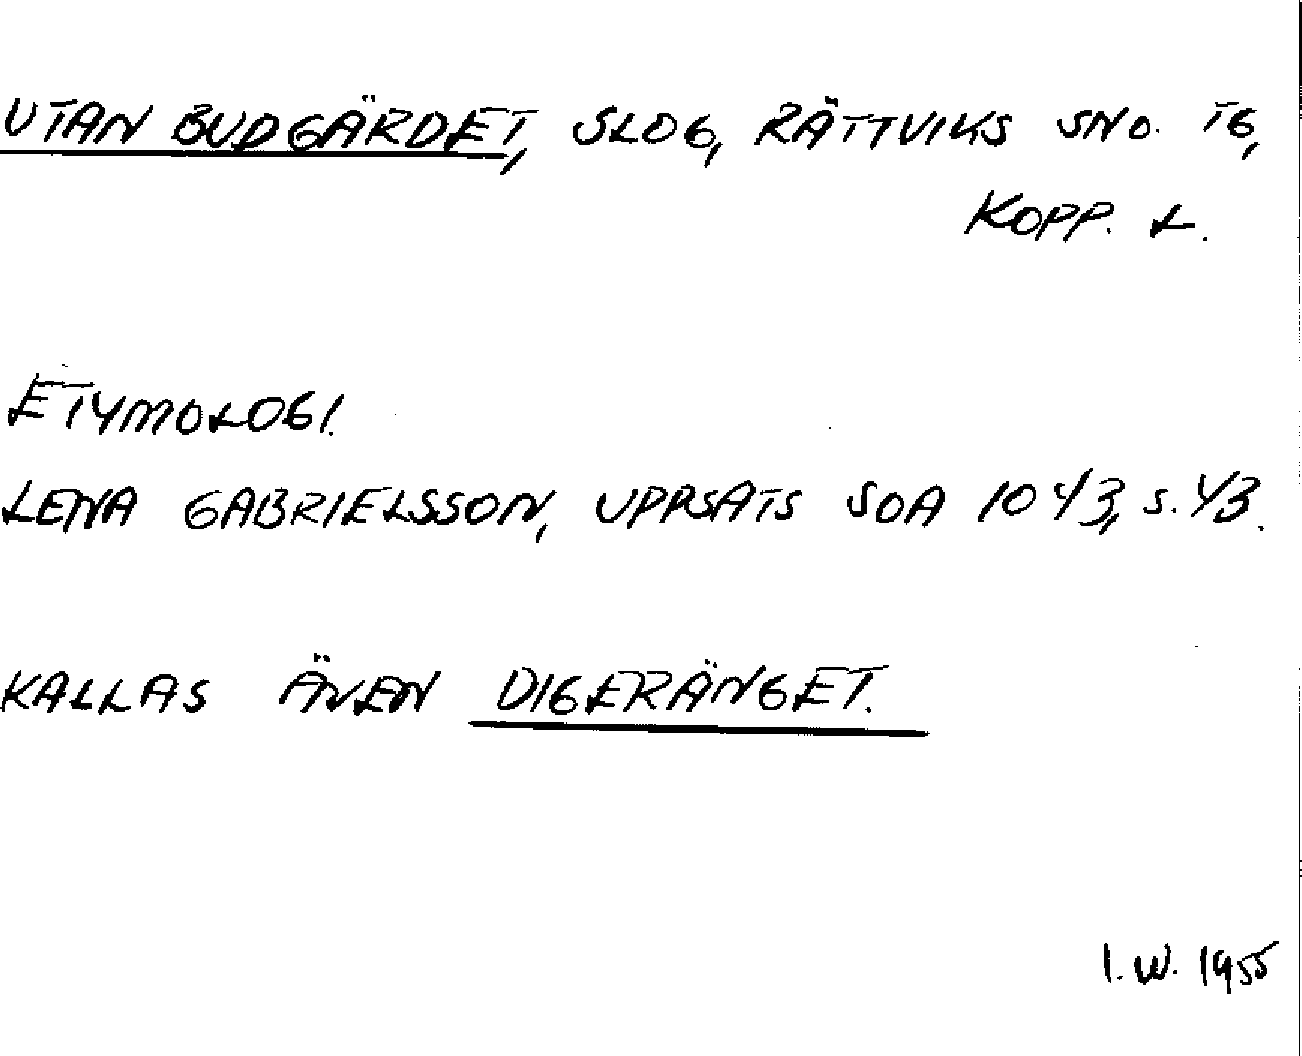 UTAN BUDGÄRDET, SLOG, RÄTTVIKS SND. TG,
KOPP. L.
ETYMOLOGI.
LENA GABRIELSSON, UPPSATS SOA 1043, S. 43.
KALLAS ÄVEN DIGERÄNGET.
I. W. 1955